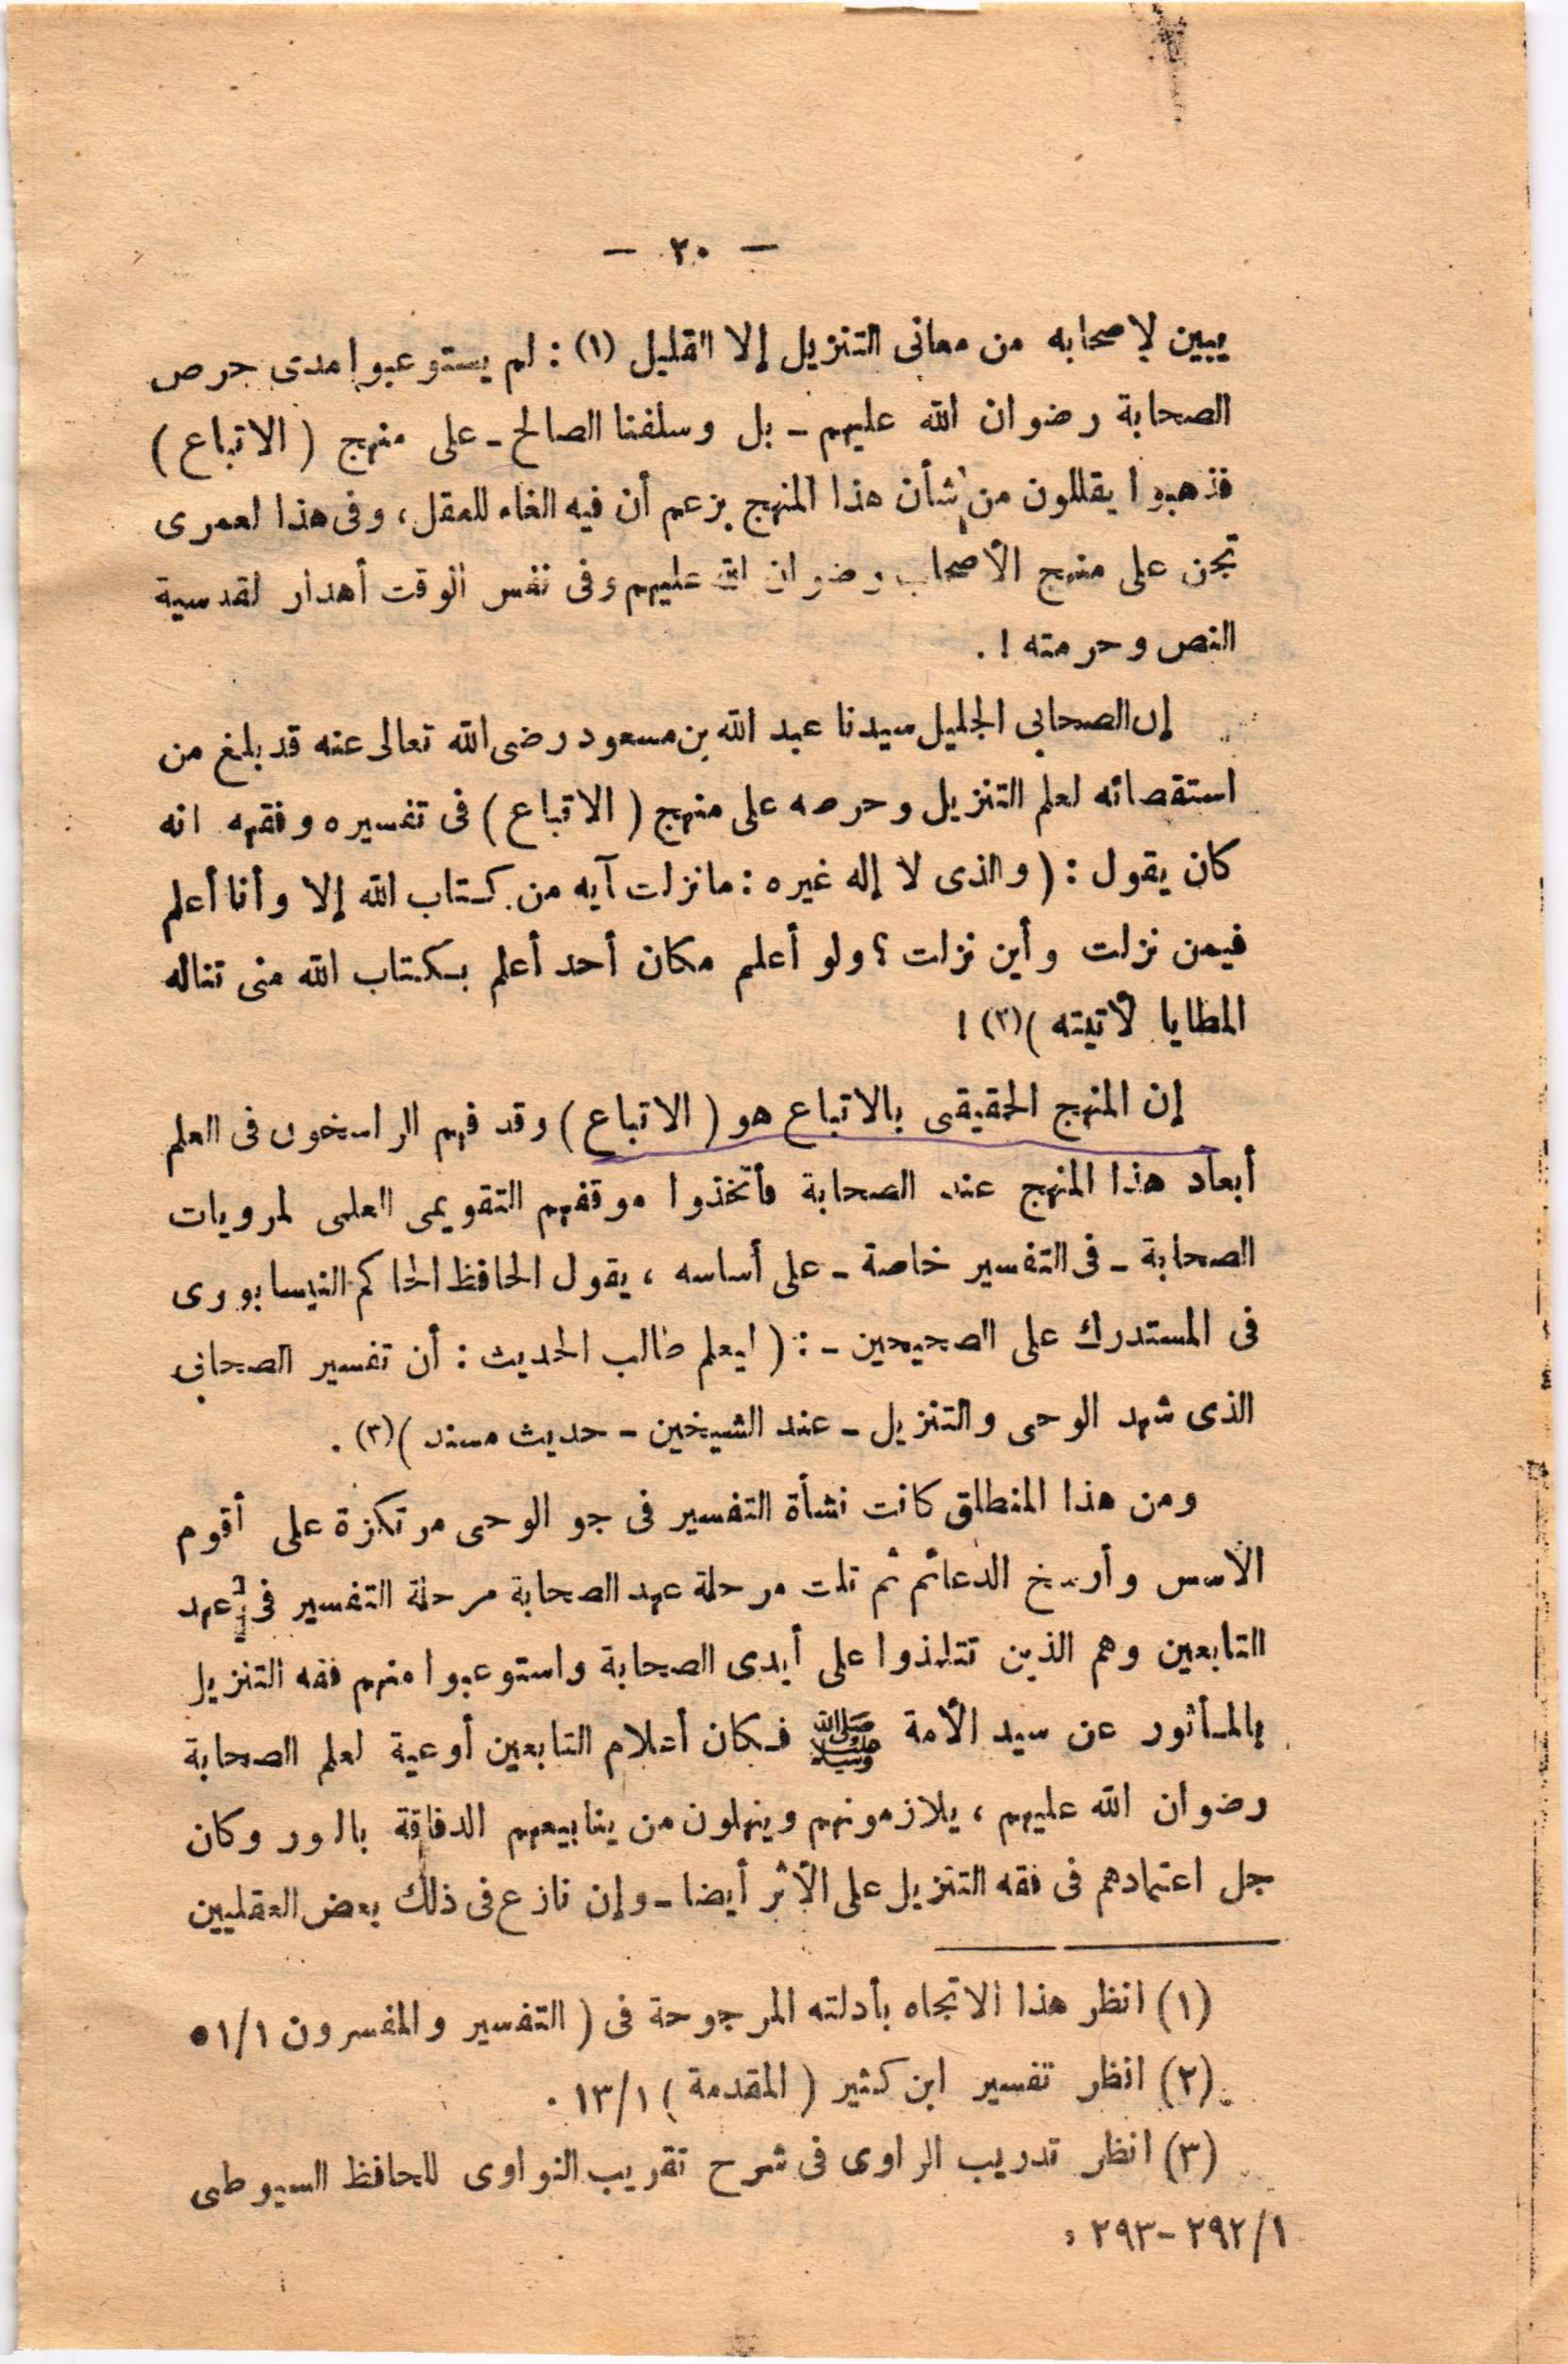 — ٢٠ —
يبين لإصحابه من معانى التنزيل إلا القليل (١) : لم يستوعبوا مدى حرص
الصحابة رضوان الله عليهم - بل وسلفنا الصالح - على منهج ( الاتباع )
فذهبوا يقللون من شأن هذا المنهج بزعم أن فيه الغاء للعقل ، وفى هذا لعمرى
تجن على منهج الأصحاب رضوان الله عليهم وفى نفس الوقت أهدار لقدسية
النص وحرمته ! .
إن الصحابى الجليل سيدنا عبد الله بن مسعود رضى الله تعالى عنه قد بلغ من
استقصائه لعلم التنزيل وحرصه على منهج ( الاتباع ) فى تفسيره وفقهه انه
كان يقول : ( والذى لا إله غيره : ما نزلت آيه من كتاب الله إلا وأنا أعلم
فيمن نزلت وأين نزلت ؟ ولو أعلم مكان أحد أعلم بكتاب الله منى تناله
المطايا لأتيته )(٢) !
إن المنهج الحقيقى بالاتباع هو ( الاتباع ) وقد فهم الراسخون فى العلم
أبعاد هذا المنهج عند الصحابة فأتخذوا موقفهم التقويمى العلمى لمرويات
الصحابة - فى التفسير خاصة - على أساسه ، يقول الحافظ الحاكم النيسابورى
فى المستدرك على الصحيحين - : ( ليعلم طالب الحديث : أن تفسير الصحابى
الذى شهد الوحى والتنزيل - عند الشيخين - حديث مسند )(٣) .
ومن هذا المنطلق كانت نشأة التفسير فى جو الوحى مرتكزة على أقوم
الأسس وأرسخ الدعائم ثم تلت مرحلة عهد الصحابة مرحلة التفسير فى عهد
التابعين وهم الذين تتلمذوا على أيدى الصحابة واستوعبوا منهم فقه التنزيل
بالمأثور عن سيد الأمة ﷺ فكان أعلام التابعين أوعية لعلم الصحابة
رضوان الله عليهم ، يلازمونهم وينهلون من ينابيعهم الدفاقة بالنور وكان
جل اعتمادهم فى فقه التنزيل على الأثر أيضا - وإن نازع فى ذلك بعض العقليين
(١) انظر هذا الاتجاه بأدلته المرجوحة فى ( التفسير والمفسرون ٥١/١
(٢) انظر تفسير ابن كثير ( المقدمة ) ١٣/١ .
(٣) انظر تدريب الراوى فى شرح تقريب النواوى للحافظ السيوطى
٢٩٢/١-٢٩٣ .